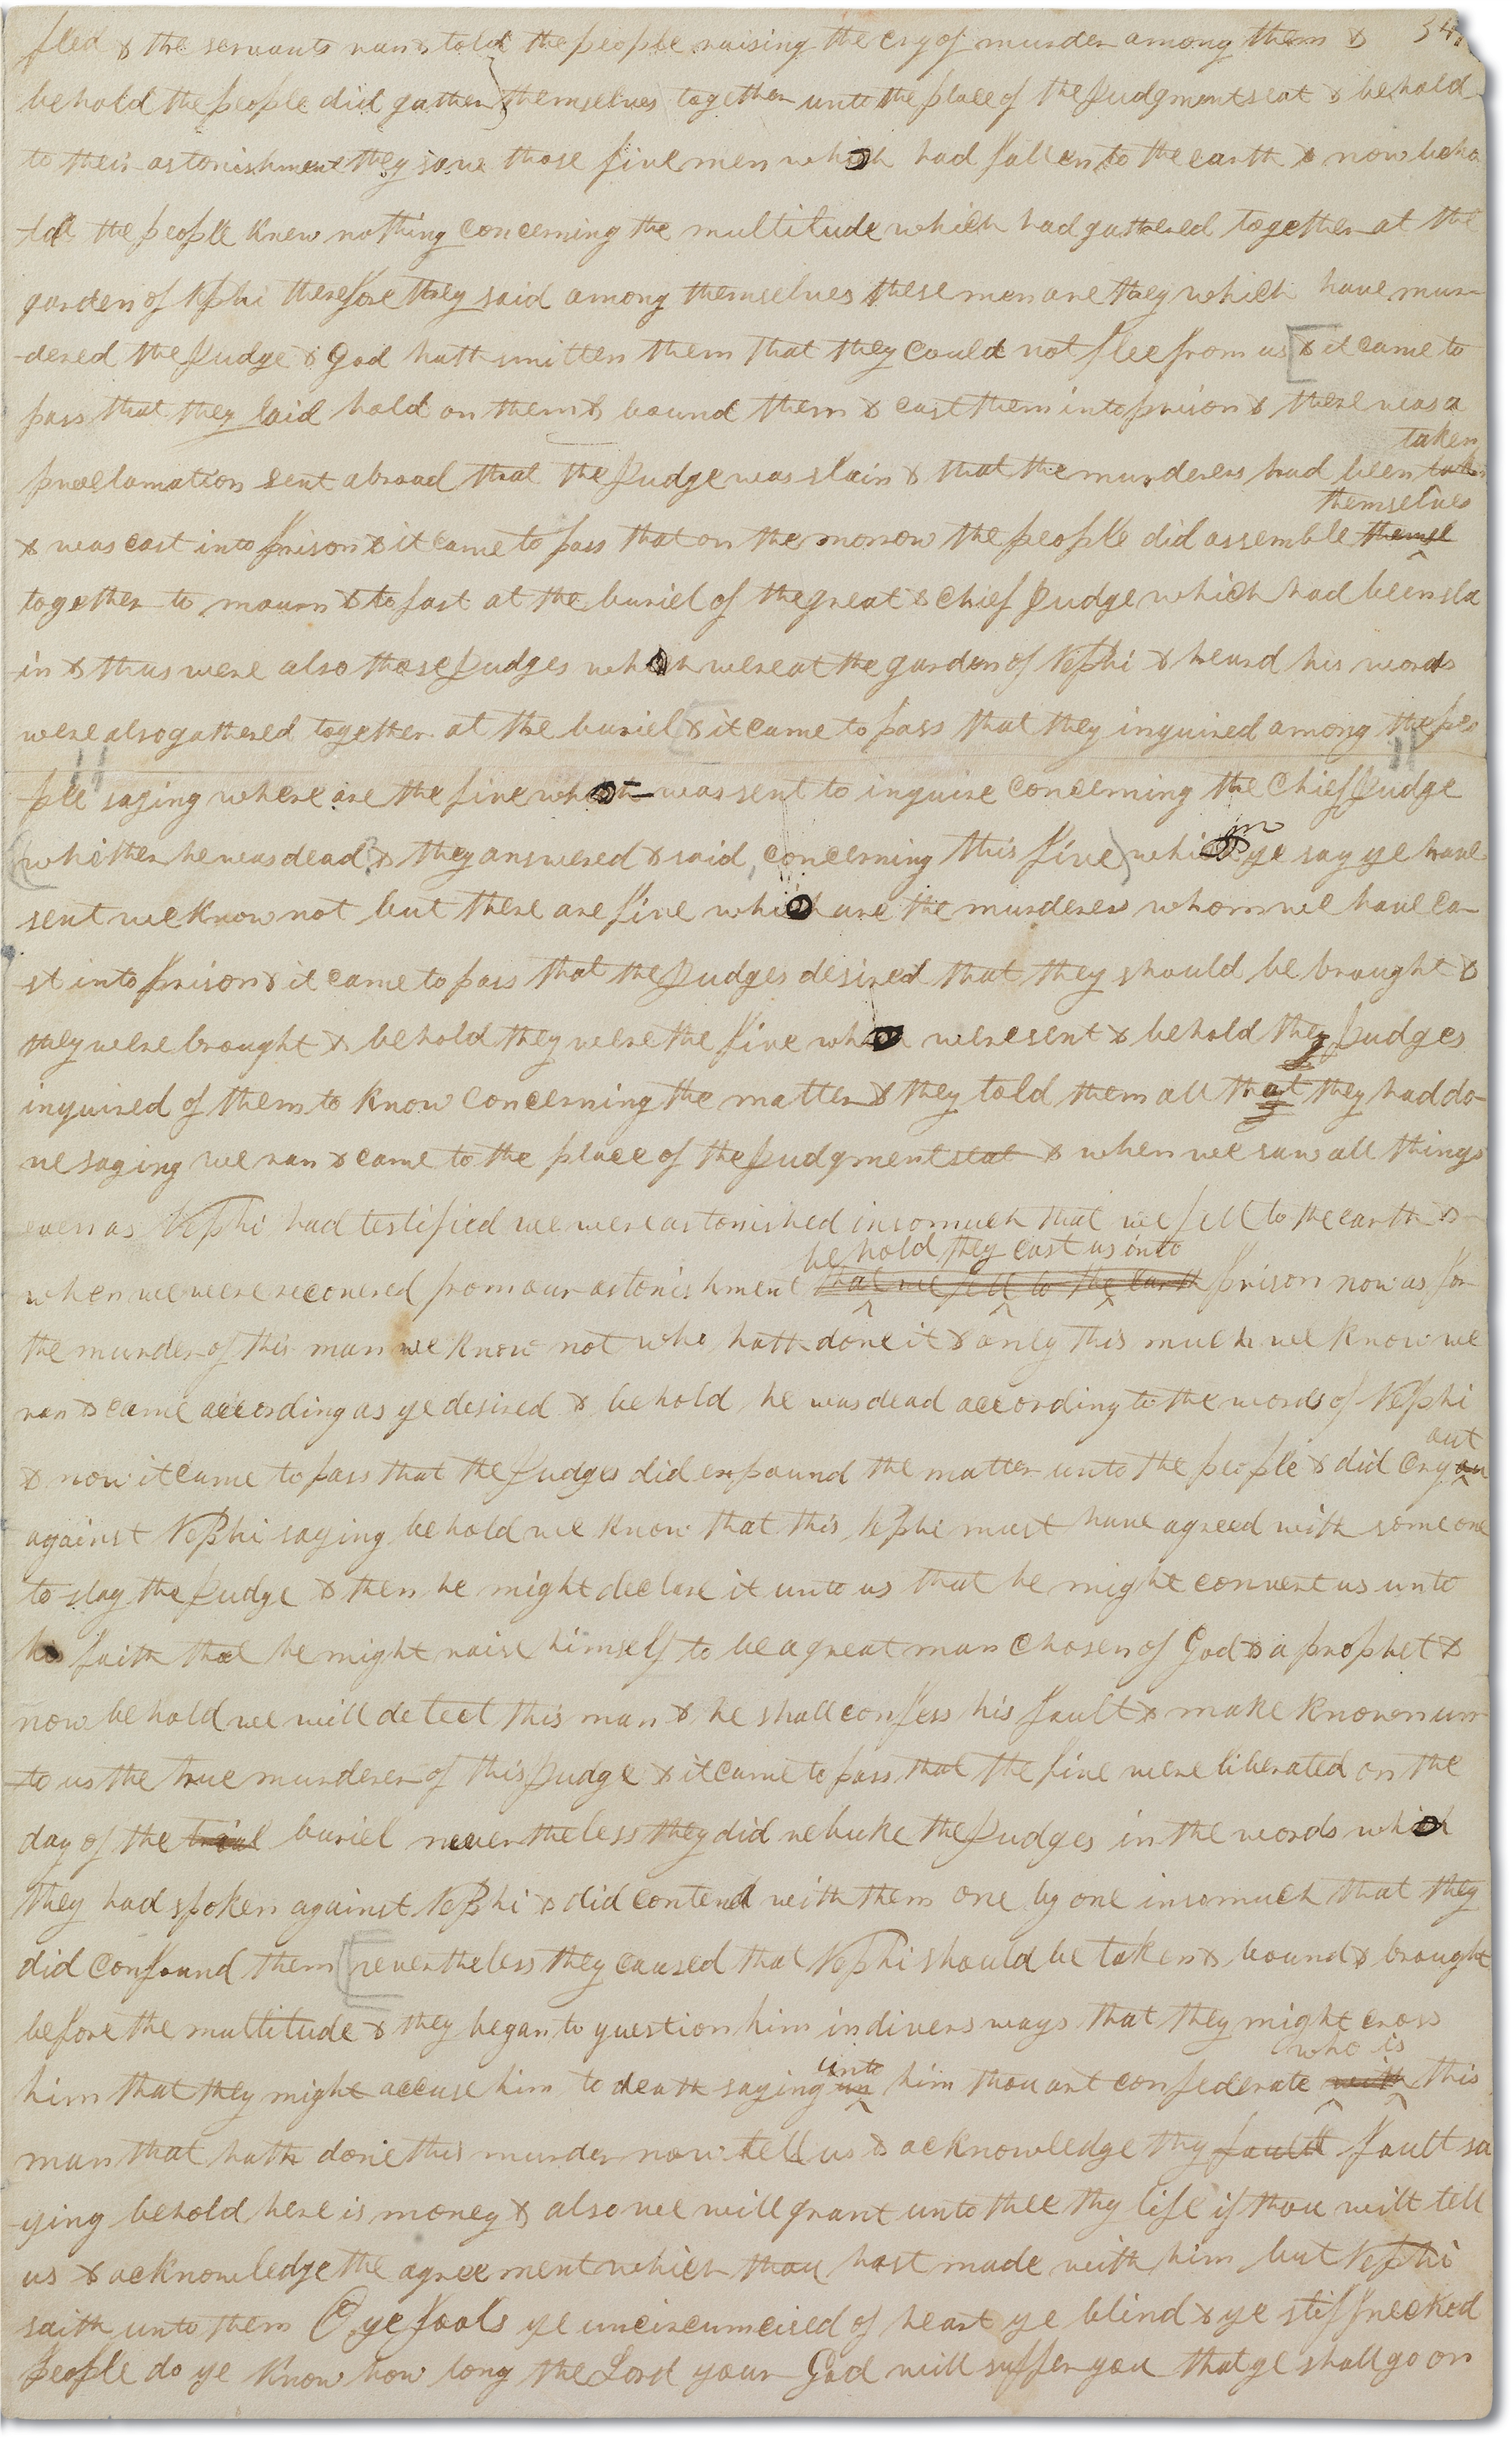 fled & the servants ran & told the people raising the cry of murder among them &
behold the people did gather themselves together unto the place of the Judgment seat & behold
to their astonishment they saw those five men which had fallen to the earth & now beho
-ld the people knew nothing concerning the multitude which had gathered together at the
garden of Nephi therefore they said among themselves these men are they which have mur-
-dered the Judge & God hath smitten them that they could not flee from us & it came to
pass that they laid hold on them & bound them & cast them into prison & there was a
taken
proclamation sent abroad that the Judge was slain & that the murderers had been
themselves
& was cast into prison & it came to pass that on the morrow the people did assemble themsl
together to mourn & to fast at the buriel of the great & chief Judge which had been sla
in & thus were also those Judges which were at the garden of Nephi & heard his words
were also gathered together at the buriel & it came to pass that they inquired among the peo
ple saying where are the five which was sent to inquire concerning the Chief Judge
m
whether he was dead? & they answered & said, concerning this five) which ye say ye have
sent we know not but there are five which are the murderers whom we have ca-
st into prison & it came to pass that the Judges desired that they should be brought &
they were brought & behold they were the five who were sent & behold the Judges
inquired of them to know concerning the matter & they told them all that they had do-
ne saying we ran & came to the place of the Judgment seat & when we saw all things
even as Nephi had testified we were astonished insomuch that we fell to the earth &
behold they cast us into
when we were recovered from our astonishment that we fell to the earth prison now as for
the murder of this man we know not who hath done it & only this much we know we
ran & came according as ye desired & behold he was dead according to the words of Nephi
out
& now it came to pass that the Judges did expound the matter unto the people & did cry ou
against Nephi saying behold we know that this Nephi must have agreed with some one
to slay the Judge & then he might declare it unto us that he might convert us unto
his faith that he might raise himself to be a great man chosen of God & a prophet &
now behold we will detect this man & he shall confess his fault & make known un
to us the true murderer of this Judge & it came to pass that the five were liberated on the
day of the buriel nevertheless they did rebuke the Judges in the words which
they had spoken against Nephi & did contend with them one by one insomuch that they
did confound them nevertheless they caused that Nephi should be taken & bound & brought
before the multitude & they began to question him in divers ways that they might cross
unto who is
him that they might accuse him to death saying un him thou art confederate with this
man that hath done this murder now tell us & acknowledge thy fault sa
-ying behold here is money & also we will grant unto thee thy life if thou wilt tell
us & acknowledge the agreement which thou hast made with him but Nephi
saith unto them O ye fools ye uncircumcised of heart ye blind & ye stiffnecked
people do ye know how long the Lord your God will suffer you that ye shall go on